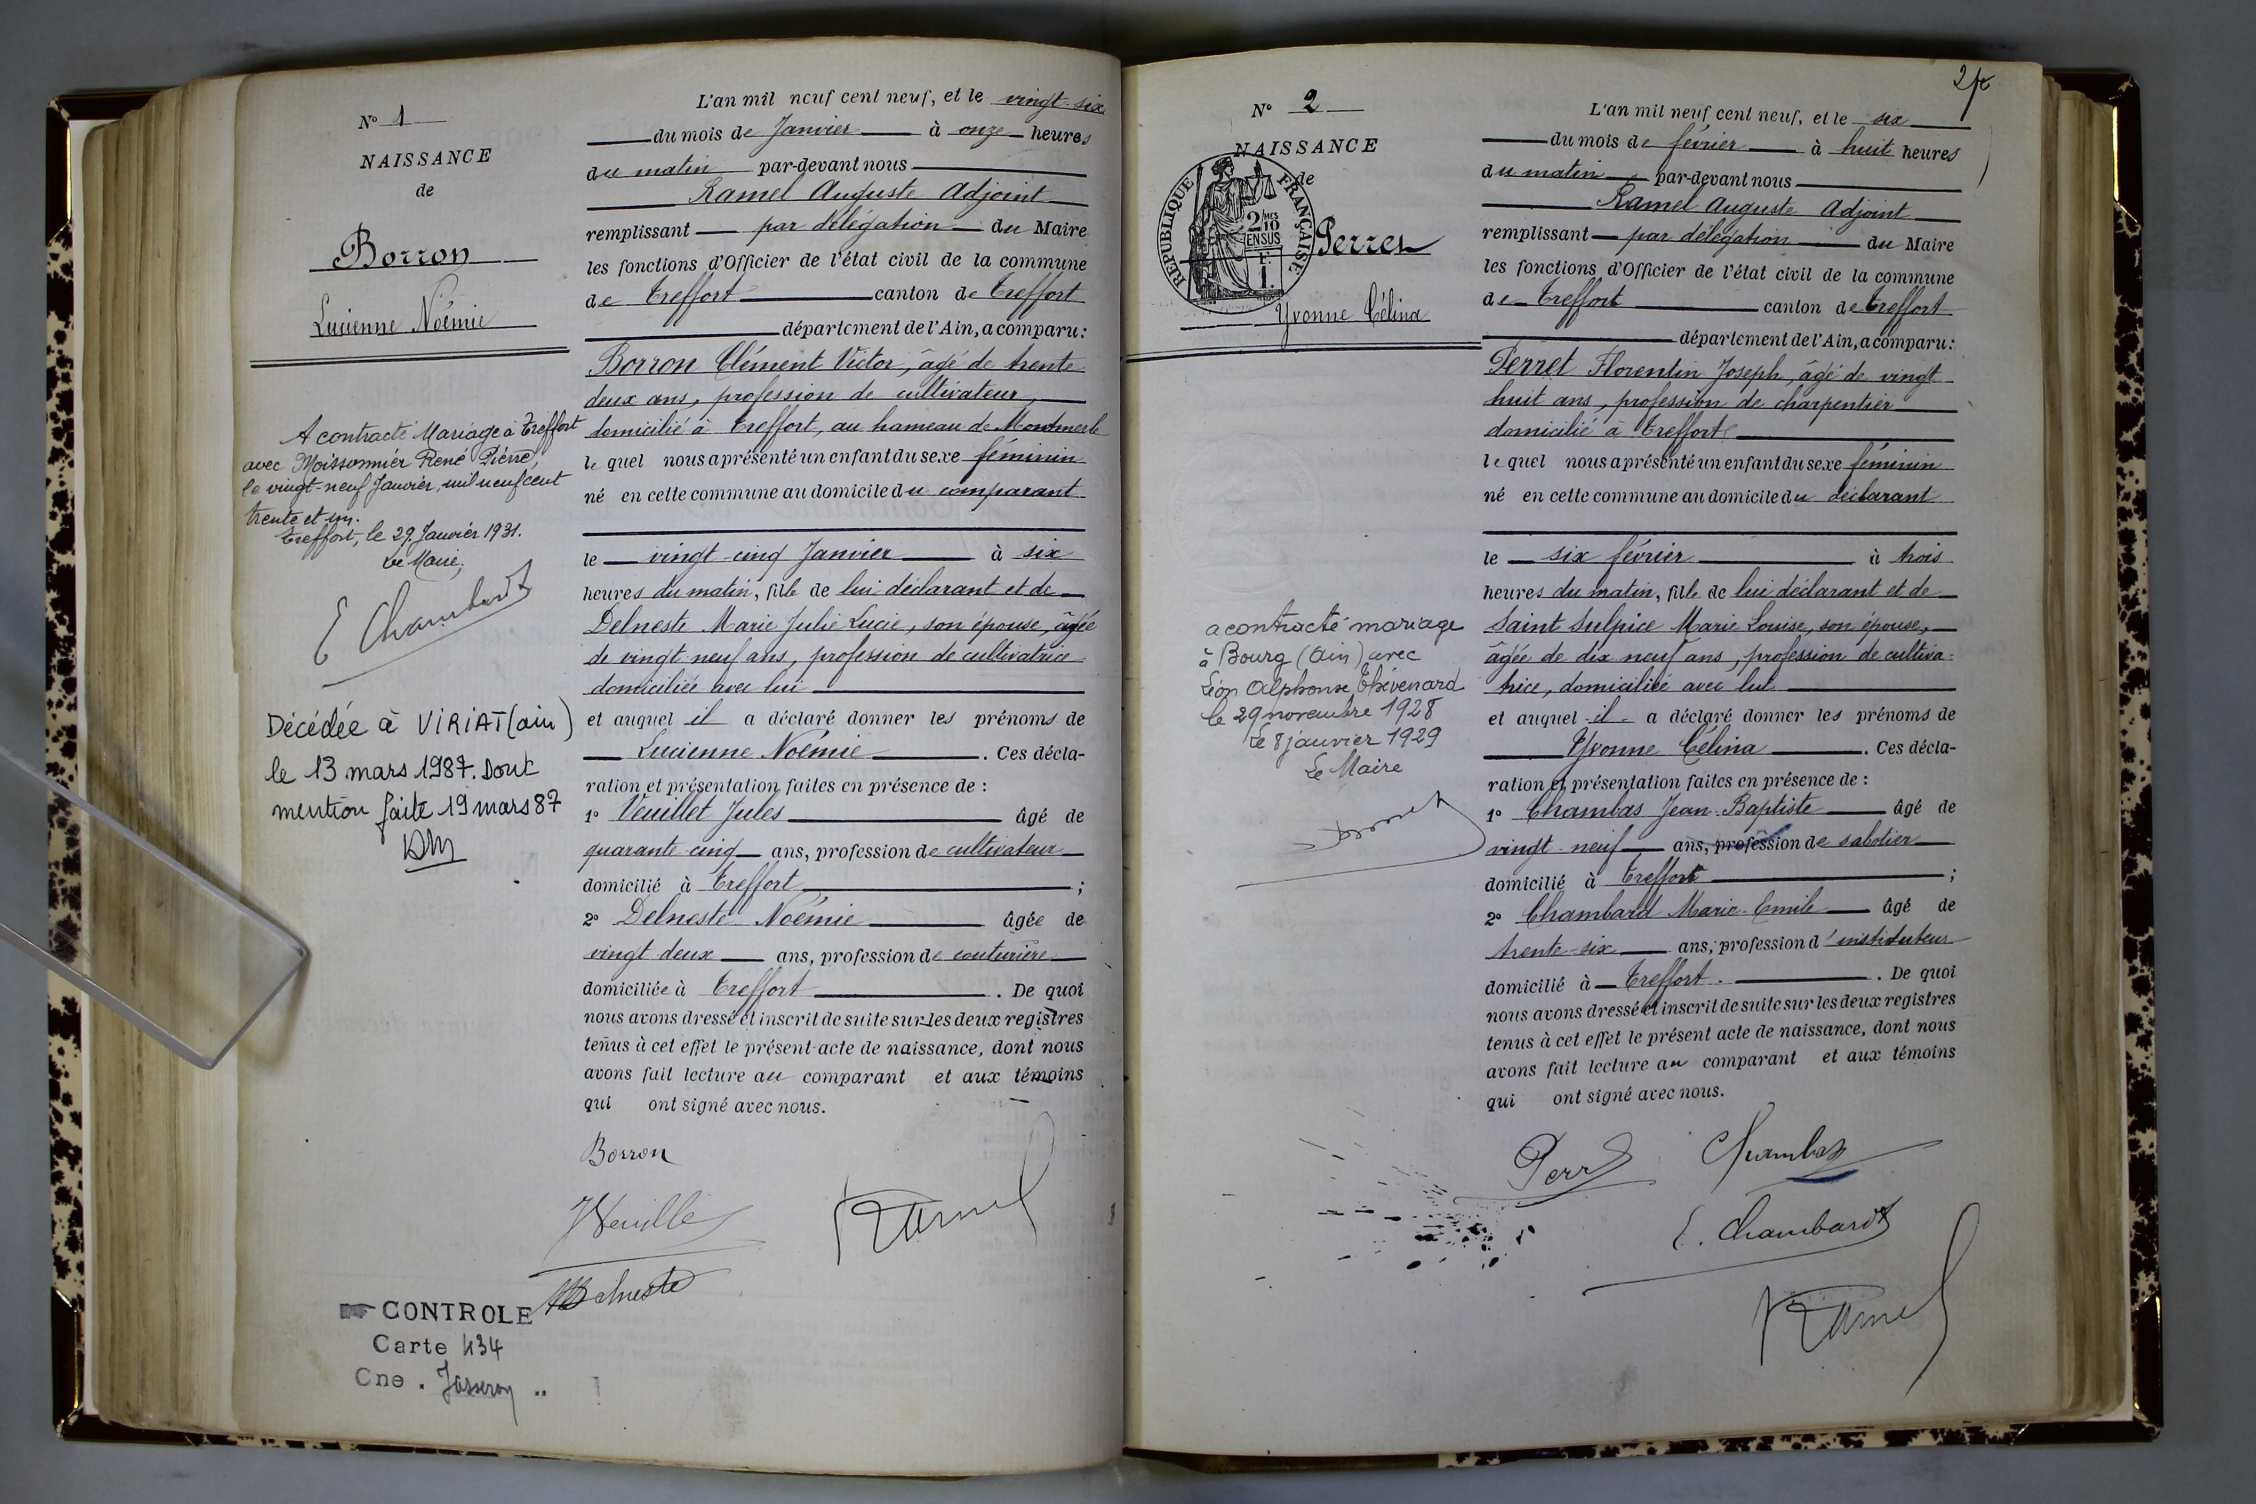 N° 1
NAISSANCE
de
Borron
Lucienne Noémie
A contracté Mariage à Treffort
avec Moissonnier René Pierre
le vingt-neuf Janvier, mil neuf cent
trente et un.
Treffort, le 29 Janvier 1931.
Le Maire,
E Chambard
Décédée à VIRIAT (ain)
le 13 mars 1987. Dont
mention faite 19 mars 87
CONTROLE
Carte 434
Cne . Jasseron
L'an mil neuf cent neuf, et le vingt-six
du mois de Janvier à onze heures
du matin par-devant nous
Ramel Auguste Adjoint
remplissant par délégation du Maire
les fonctions d'Officier de l'état civil de la commune
de Treffort canton de Treffort
département de l'Ain, a comparu:
Borron Clément Victor, âgé de trente
deux ans, profession de cultivateur,
domicilié à Treffort, au hameau de Montmerle
lequel nous a présenté un enfant du sexe féminin
né en cette commune au domicile du comparant
le vingt-cinq Janvier à six
heures du matin, fille de lui déclarant et de
Delneste Marie Julie Lucie, son épouse, âgée
de vingt-neuf ans, profession de cultivatrice
domiciliée avec lui
et auquel il a déclaré donner les prénoms de
Lucienne Noémie . Ces décla-
ration et présentation faites en présence de :
1° Veuillet Jules âgé de
quarante-cinq ans, profession de cultivateur
domicilié à Treffort ;
2° Delneste Noémie âgée de
vingt deux ans, profession de couturière
domiciliée à Treffort . De quoi
nous avons dressé et inscrit de suite sur les deux registres
tenus à cet effet le présent acte de naissance, dont nous
avons fait lecture au comparant et aux témoins
qui ont signé avec nous.
Borron
JVeuillet
Ramel
Delneste
N° 2
NAISSANCE
de
RÉPUBLIQUE FRANÇAISE
2/10
EN SUS
Perret
Yvonne Célina
a contracté mariage
à Bourg (Ain) avec
Léon Alphonse Thévenard
le 29 novembre 1928
Le 8 janvier 1929
Le Maire
L'an mil neuf cent neuf, et le six
du mois de février à huit heures
du matin par-devant nous
Ramel Auguste Adjoint
remplissant par délégation du Maire
les fonctions d'Officier de l'état civil de la commune
de Treffort canton de Treffort
département de l'Ain, a comparu:
Perret Florentin Joseph, âgé de vingt
huit ans, profession de charpentier
domicilié à Treffort
lequel nous a présenté un enfant du sexe féminin
né en cette commune au domicile du déclarant
le six février à trois
heures du matin, fille de lui déclarant et de
Saint Sulpice Marie Louise, son épouse,
âgée de dix neuf ans, profession de cultiva-
trice, domiciliée avec lui
et auquel il a déclaré donner les prénoms de
Yvonne Célina . Ces décla-
ration et présentation faites en présence de :
1° Chambas Jean-Baptiste âgé de
vingt-neuf ans, profession de sabotier
domicilié à Treffort ;
2° Chambard Marie-Emile âgé de
trente-six ans, profession d'instituteur
domicilié à Treffort . De quoi
nous avons dressé et inscrit de suite sur les deux registres
tenus à cet effet le présent acte de naissance, dont nous
avons fait lecture au comparant et aux témoins
qui ont signé avec nous.
Perret
Chambas
E. Chambard
Ramel